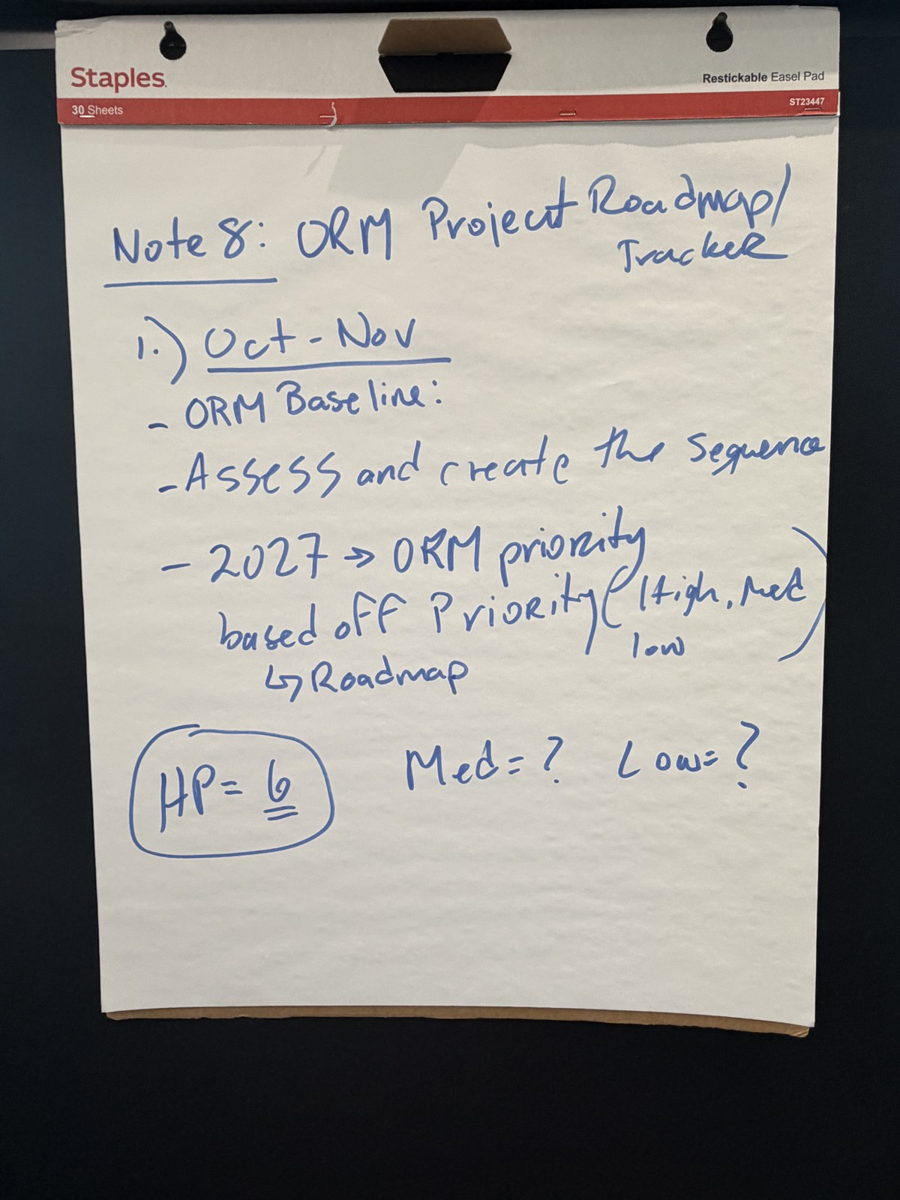 Staples
Restickable Easel Pad
30 Sheets
ST23447
Note 8: ORM Project Roadmap/
Tracker
1.) Oct - Nov
- ORM Baseline:
- Assess and create the sequence
- 2027 → ORM priority
based off Priority (High, Med
low)
↳ Roadmap
HP = 6 Med = ? Low = ?